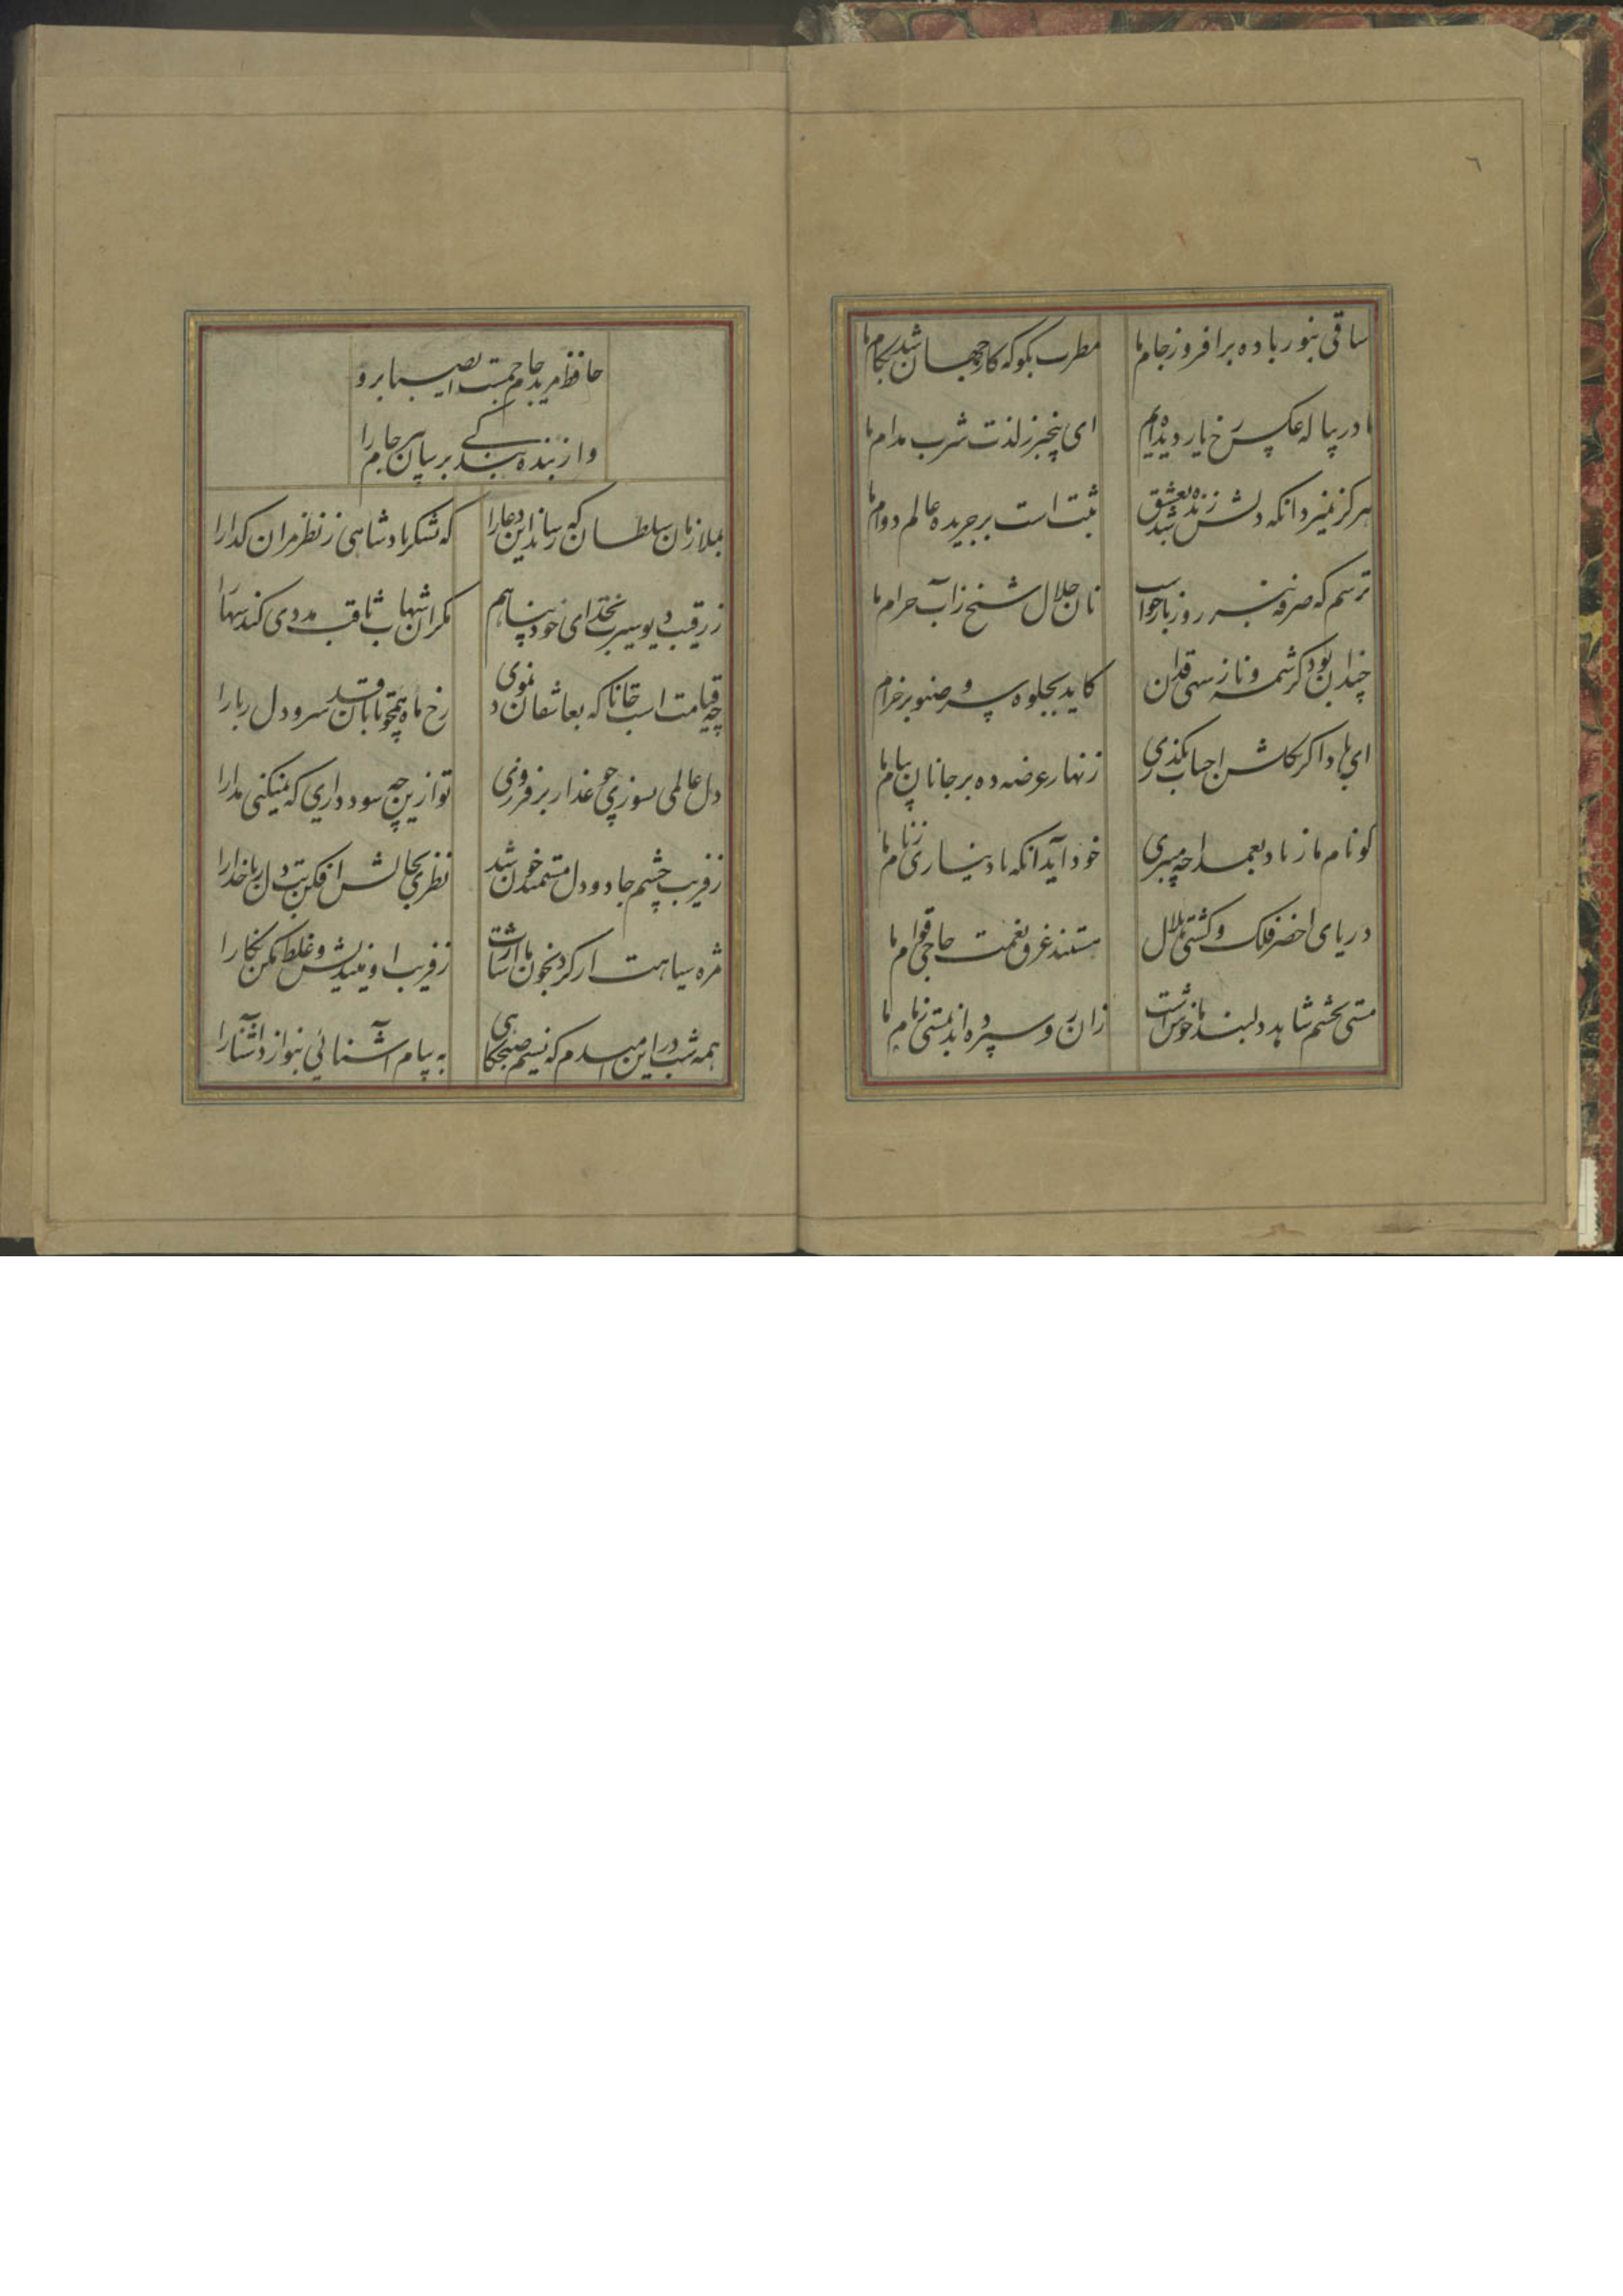 ٦
ساقی بنور باده برافروز جام ما مطرب بکو که کار جهان شد بکام ما
ما در پیاله عکس رخ یار دیده‌ایم ای بیخبر ز لذت شرب مدام ما
هرکز نمیرد انکه دلش زنده شد بعشق ثبت است بر جریده عالم دوام ما
ترسم که صرفه نبرد روز بازخواست نان حلال شیخ ز آب حرام ما
چندان بود کرشمه و ناز سهی قدان کاید بجلوه سرو صنوبر خرام ما
ای باد اکر بکلشن احباب بکذری زنهار عرضه ده بر جانان پیام ما
کو نام ما ز یاد بعمدا چه میبری خود آید انکه یاد نیاری ز نام ما
دریای اخضر فلک و کشتی هلال هستند غرق نعمت حاجی قوام ما
مستی بچشم شاهد دلبند ما خوش است زان رو سپرده‌اند بمستی زمام ما
حافظ مرید جام جمست ای صبا برو
وز بنده بندکی برسان جام را
بملازمان سلطان که رساند این دعا را که بشکر پادشاهی ز نظر مران کدا را
ز رقیب دیوسیرت بخدای خود پناهم مکر ان شهاب ثاقب مددی کند سها را
چه قیامت است جانا که بعاشقان نمودی رخ ماه همچو تابان قد سرو دل ربا را
دل عالمی بسوزی چو عذار برفروزی تو ازین چه سود داری که نمیکنی مدارا
ز فریب چشم جادو دل مستمند خون شد نظری بحالش افکن بت دل ربا خدا را
مژه سیاهت ار کرد بخون ما اشارت ز فریب او بیندیش و غلط مکن نکارا
همه شب در این امیدم که نسیم صبحکاهی به پیام آشنائی بنوازد آشنا را